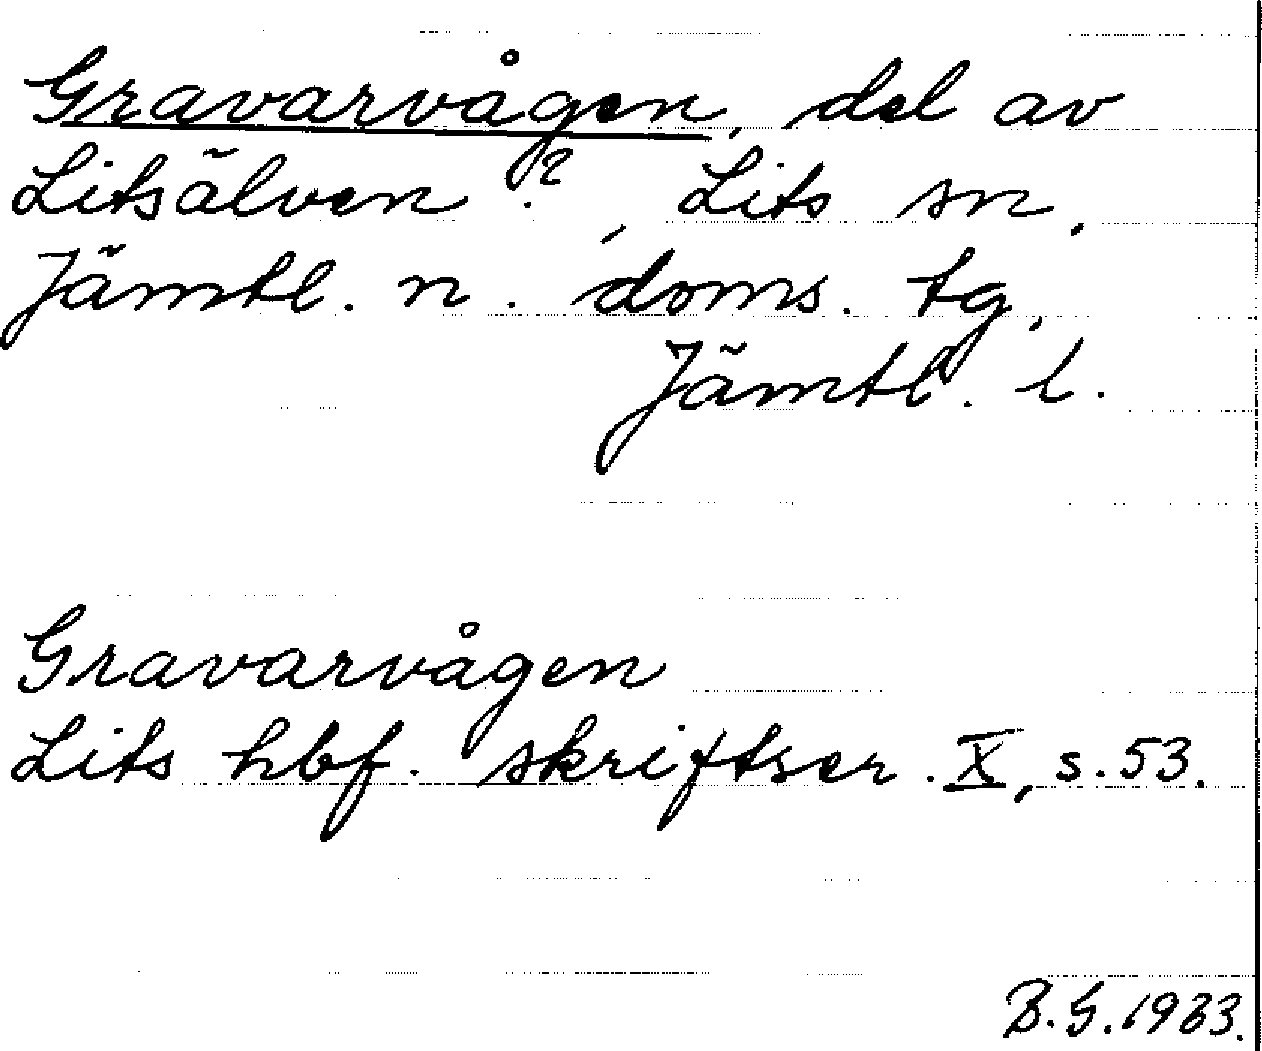 Gravarvågen, del av
Litsälven?, Lits sn,
Jämtl. n. doms. tg,
Jämtl. l.
Gravarvågen
Lits hbf. skriftser. X, s. 53.
B.G.1983.